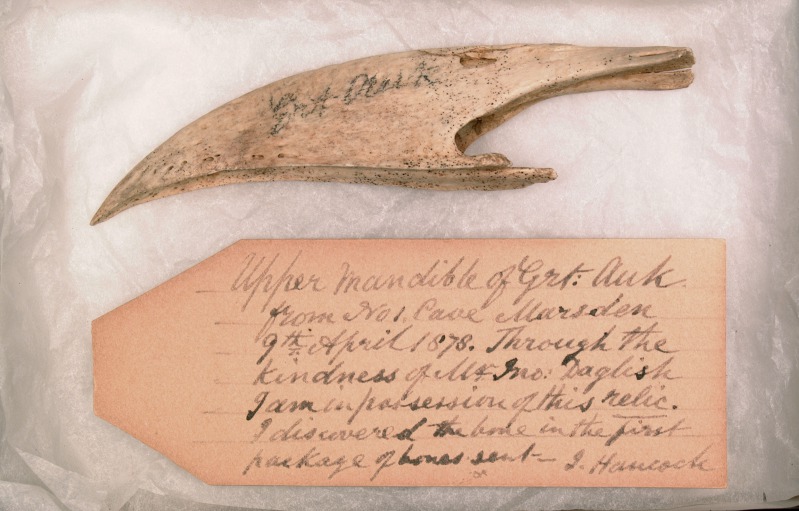 Grt Auk
Upper Mandible of Grt: Auk
from No 1. Cave Marsden
9th April 1878. Through the
kindness of Mr. Jno: Daglish
I am in possession of this relic.
I discovered the bone in the first
package of bones sent – J. Hancock